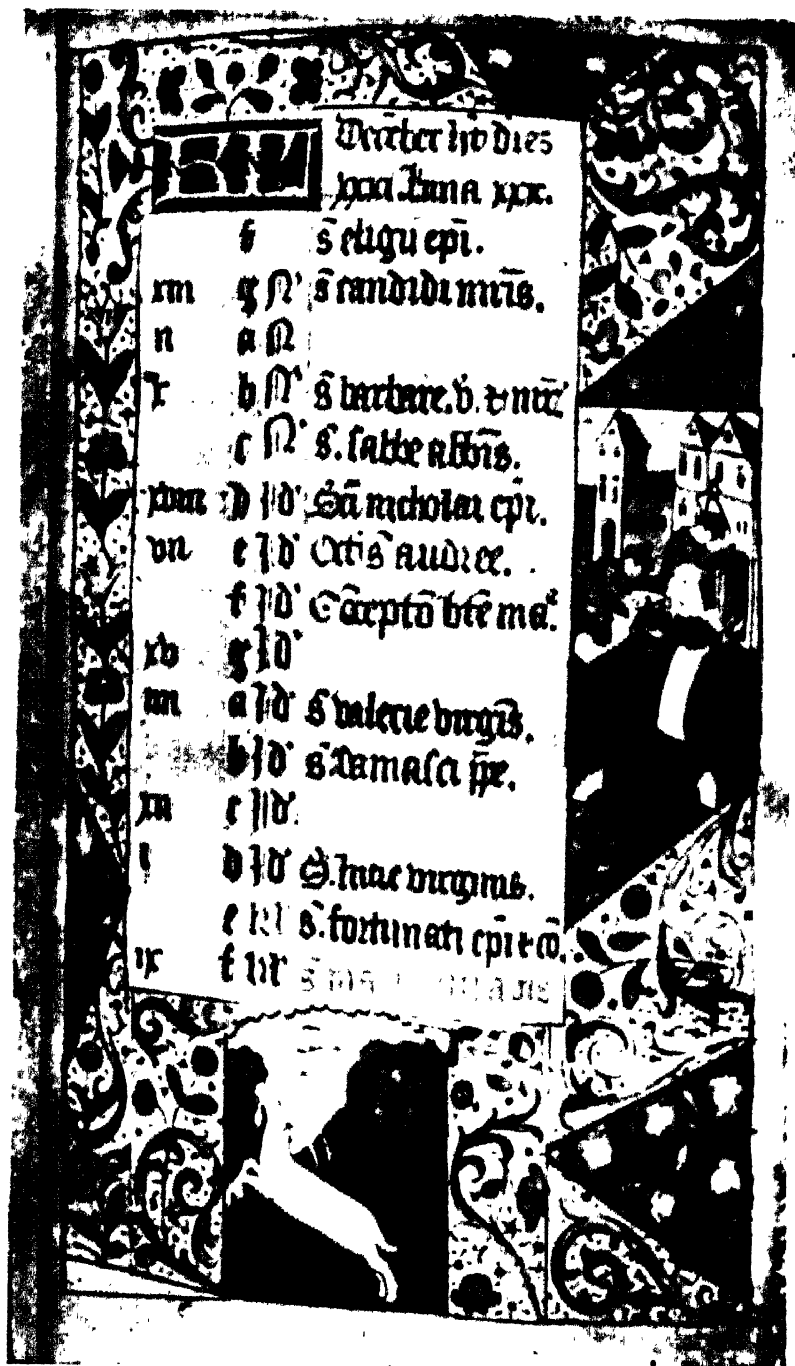 KL Decēber hꝫ dies
xxxi. luna xxx.
f s̄ eligii epī.
xiii g N' s̄ candidi mr̄is.
ii a N
x b N' s̄ barbare. v. ⁊ mr̄
c N' s̄. sabbe abb̄is.
xviii d Id' Sc̄i nicholai epī.
vii e Id' Octīs andree.
f Id' Cōcepto bt̄e ma.
xv g Id'
iiii a Id' s̄ valerie virgīs.
b Id' s̄ damasci pp̄e.
xii c Id'.
i d Id' S. lucie virginis.
e s̄. fortunati epī ⁊ cō.
ix f